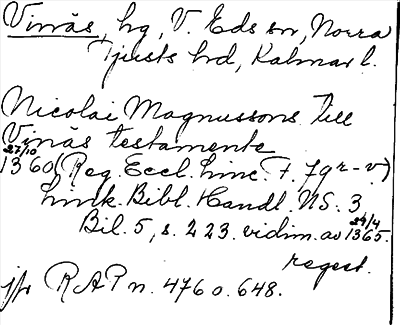 Vinäs, hg, V. Eds sn, Norra
Tjusts hd, Kalmar l.
Nicolai Magnussons till
Vinäs testamente
27/10
1360 (Reg. Eccl. Linc. F. 79r-v)
Link. Bibl. Handl. NS. 3
Bil. 5, s. 223. vidim. av 29/4 1365.
regest.
jfr RAP n. 476 o. 648.